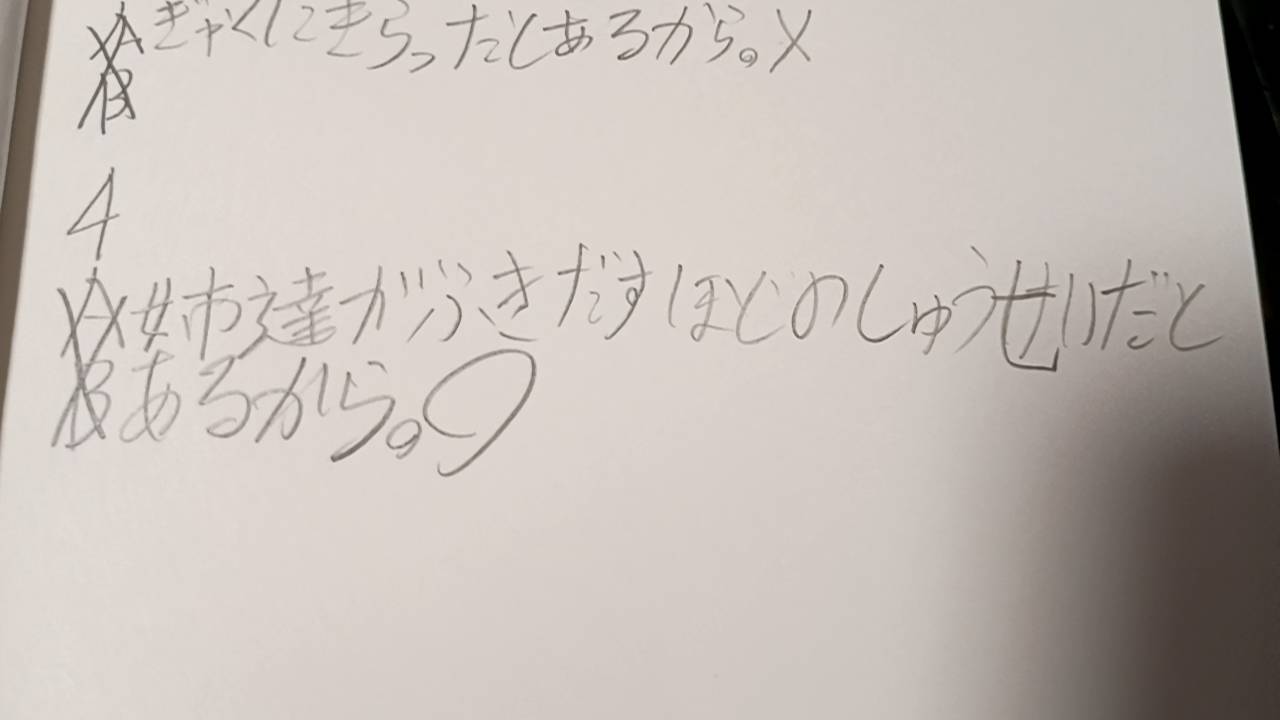 XA ぎゃくにきらったとあるから。X
XB
4
XA X姉達がふきだすほどのしゅうせいだと
XBあるから。○